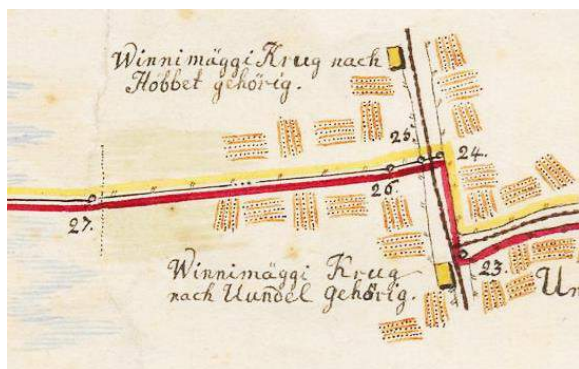 Winnimäggi Krug nach
Höbbet gehörig.
25.
24.
26.
27.
23.
Winnimäggi Krug
nach Uundel gehörig.
Un